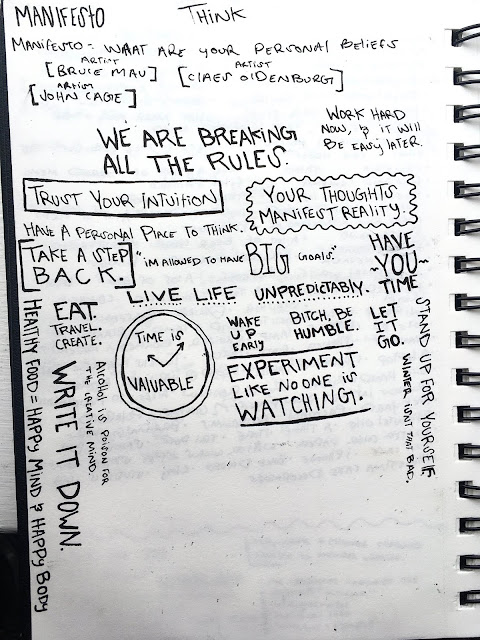 MANIFESTO
THINK
MANIFESTO = WHAT ARE YOUR PERSONAL BELIEFS
ARTIST
[BRUCE MAU]
ARTIST
[CLAES OLDENBURG]
ARTIST
[JOHN CAGE]
WORK HARD
NOW, & IT WILL
BE EASY LATER.
WE ARE BREAKING
ALL THE RULES.
TRUST YOUR INTUITION
YOUR THOUGHTS
MANIFEST REALITY.
HAVE A PERSONAL PLACE TO THINK.
[TAKE A STEP
BACK.]
"IM ALLOWED TO HAVE BIG GOALS."
HAVE
~YOU~
TIME
LIVE LIFE UNPREDICTABLY.
EAT.
TRAVEL.
CREATE.
TIME IS
VALUABLE
WAKE
UP
EARLY
BITCH, BE
HUMBLE.
LET
IT
GO.
EXPERIMENT
LIKE NO ONE IS
WATCHING.
STAND UP FOR YOURSELF.
WINTER ISN'T THAT BAD.
ALCOHOL IS POISON FOR
THE CREATIVE MIND.
WRITE IT DOWN.
HEALTHY FOOD = HAPPY MIND & HAPPY BODY